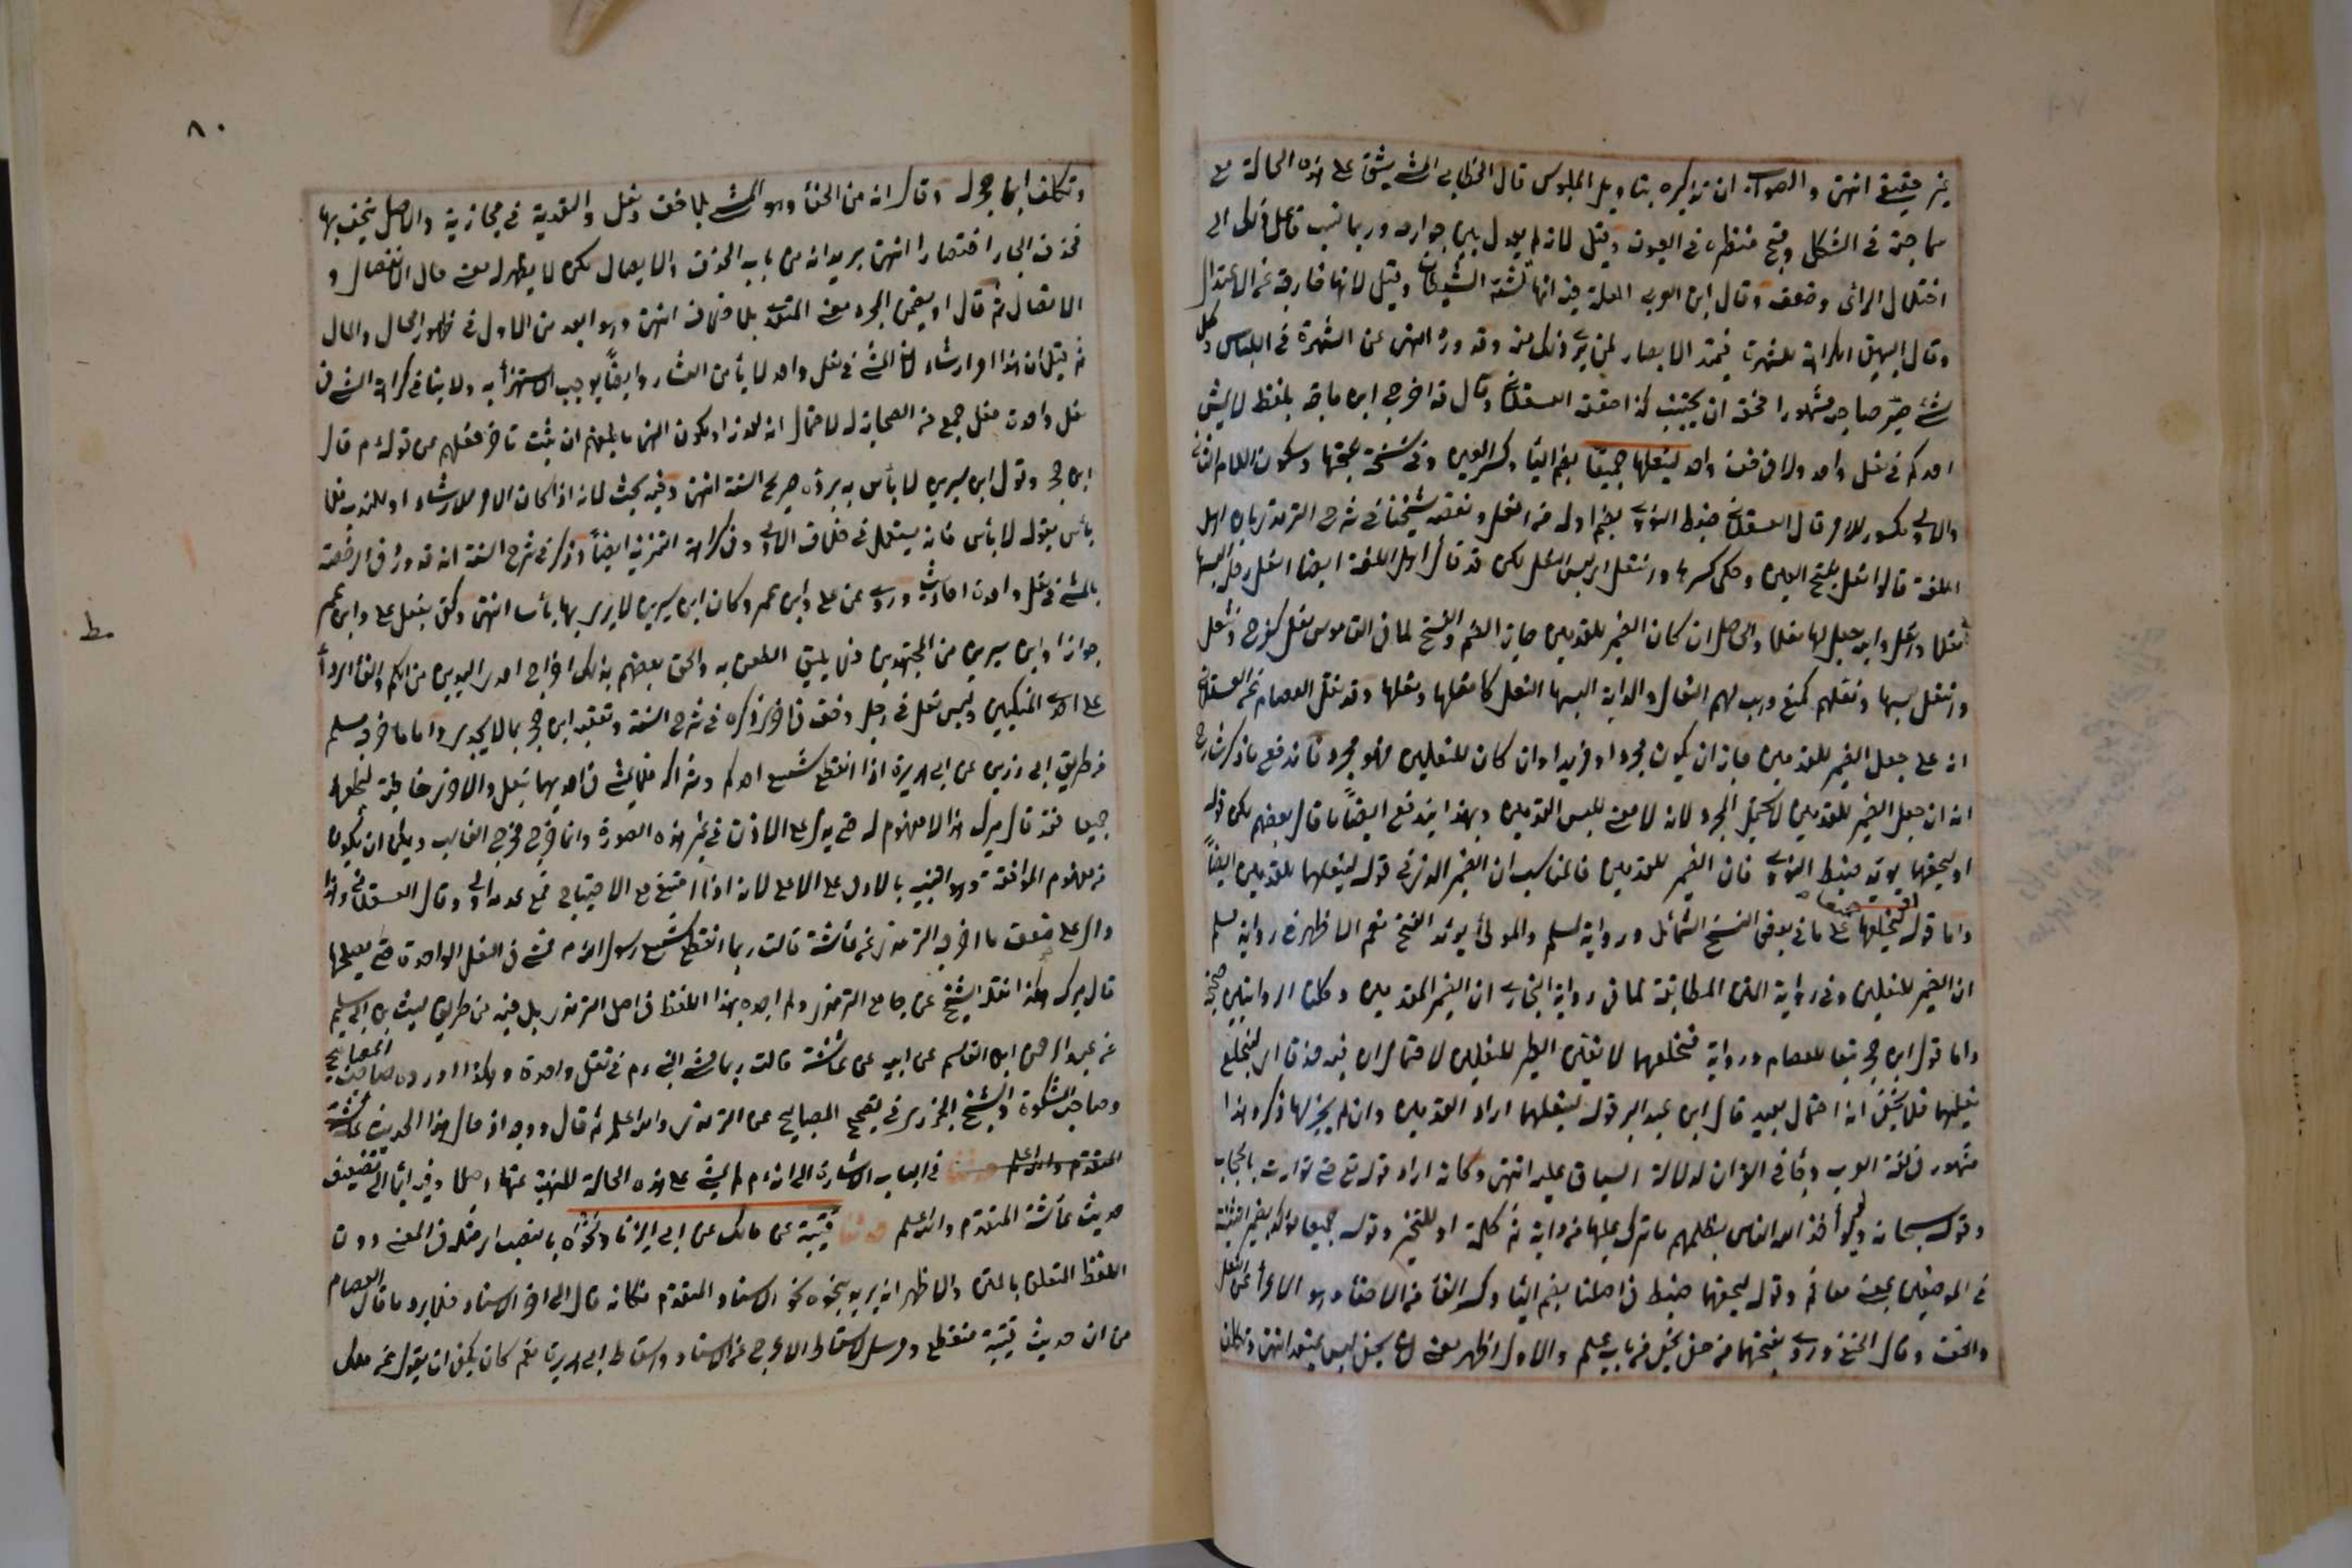 غير حقيقي انتهى والصواب ان تذكيره بتأويل الملبوس قال الخطابي المشي يشق على هذه الحالة مع
سماجته في الشكل وقبح منظره في العيون وقيل لانه لم يعدل بين جوارحه وربما نسب فاعل ذلك الى
اختلال الرأي وضعفه وقال ابن العربي العلة فيه انها مشية الشيطان وقيل لانها خارجة عن الاعتدال
وقال البيهقي الكراهة للشهرة فتمتد الابصار لمن يرى ذلك منه وقد ورد النهي عن الشهرة في اللباس وكل
شئ صير صاحبه مشهورا فحقه ان يجتنب كذا حققه العسقلاني وقال قد اخرج ابن ماجه بلفظ لا يمش
احدكم في نعل واحد ولا في خف واحد لينعلهما جميعا بضم الياء وكسر العين وفي نسخة بفتحهما وسكون اللام الثانية
والاولى مكسور للامر قال العسقلاني ضبطه النووي بضم اوله من انعل وتعقبه شيخنا في شرح الترمذي بان اهل
اللغة قالوا نعل بفتح العين وحكي كسرها وانتعل اي لبس النعل لكن قد قال اهل اللغة ايضا انعل رجله البسها
نعلا وانعل دابته جعل لها نعلا والحاصل ان كان الضمير للقدمين جاز الضم والفتح لما في القاموس نعل كفرح وتنعل
وانتعل لبسها ونعلهم كمنع وهب لهم النعال والدابة البسها النعل كانعلها ونعلها وقد نقل العصام عن العسقلاني
انه على جعل الضمير للقدمين جاز ان يكون مجردا او مزيدا وان كان للنعلين فهو مجرد فاندفع ما ذكر شارح
انه ان جعل الضمير للقدمين لا يحتمل المجرد لانه لا معنى للبس القدمين وبهذا يندفع ايضاً ما قال بعضهم لكن قوله
او ليحفهما يؤيد ضبط النووي فان الضمير للقدمين فالمناسب ان الضمير الذي في قوله لينعلهما للقدمين ايضاً
واما قوله او ليخلعهما جميعا على ما في بعض النسخ الشمائل ورواية لمسلم والموطأ يؤيد الفتح نعم الاظهر في رواية مسلم
ان الضمير للنعلين وفي رواية المتن المطابقة لما في رواية البخاري ان الضمير للقدمين وكلتا الروايتين صحيحة
واما قول ابن حجر تبعا للعصام ورواية فيخلعهما لا يعين الضمير للنعلين لاحتمال ان فيه حذفا اي ليخلع
نعليهما فلا يخفى انه احتمال بعيد قال ابن عبد البر قوله لينعلهما اراد القدمين وان لم يجر لهما ذكر وهذا
مشهور في لغة العرب وجاء في القرآن لدلالة السياق عليه انتهى وكانه اراد قوله تع حتى توارت بالحجاب
وقوله سبحانه ولو يؤاخذ الله الناس بظلمهم ما ترك عليها من دابة ثم كلمة او للتخيير وقوله جميعا مؤكد لضمير التثنية
في الموضعين بمعنى معا ثم وقوله ليحفهما ضبط في اصلنا بضم الياء وكسر الفاء من الاحفاء وهو الاعراء عن النعل
والخف وقال الحنفي وروي بفتحهما من حفى يحفى من باب علم والاول اظهر معنى لان حفي ليس بمتعد انتهى وتكلف
٨٠
وتكلف ابن حجر له وقال انه من الحفاء وهو المشي بلا خف ونعل والتعدية في مجازية والاصل يحفى بهما
فحذف الجار اختصارا انتهى يريد انه من باب الحذف والايصال لكن لا يظهر له معنى حال الانفصال و
الاتصال ثم قال او يضمن المجرد معنى المتعدي بلا حذف انتهى وهو ابعد من الاول في ظهور الحال والمآل
ثم قيل ان هذا امر ارشاد لان المشي في نعل واحد لا يأمن العثار وايضاً يوجب الاستهزاء به ولا ينافي كراهة المشي في
نعل واحدة فعل جمع من الصحابة له لاحتمال انه لعذر او لكون النهي ما بلغهم ان يثبت تاخر فعلهم عن قوله م قال
ابن حجر وقول ابن سيرين لا بأس به يرده صريح السنة انتهى وفيه بحث لانه اذا كان الامر للارشاد او للندب فلا
بأس بقوله لا بأس فانه يستعمل في خلاف الاولى وفي كراهة التنزيه ايضاً وذكر في شرح السنة انه قد ورد في الرخصة
بالمشي في نعل واحدة احاديث وروى عن علي وابن عمر وكان ابن سيرين لا يرى بها بأسا انتهى وكفى بفعل علي وابن عمر
جوازا وابن سيرين من المجتهدين فلا يليق الطعن به والحق بعضهم بذلك اخراج احد اليدين من الكم والقاء الرداء
على احد المنكبين ولبس نعل في رجل وخف في اخرى ذكره في شرح السنة وتعقبه ابن حجر بما لا يجدي واما ما اخرجه مسلم
من طريق ابي رزين عن ابي هريرة اذا انقطع شسع احدكم وشراكه فلا يمش في احديهما بنعل والاخرى حافية ليحفهما
جميعا فقد قال ميرك هذا لا مفهوم له حتى يدل على الاذن في غير هذه الصورة وانما خرج مخرج الغالب ويمكن ان يكون
من مفهوم الموافقة وهو التنبيه بالادنى على الاعلى لانه اذا امتنع مع الاحتياج فمع عدمه اولى وقال العسقلاني وهذا
دال على ضعف ما اخرجه الترمذي عن عائشة قالت ربما انقطع شسع رسول الله م فمشى في النعل الواحدة حتى يصلحها
قال ميرك هكذا نقله الشيخ عن جامع الترمذي ولم اجده بهذا اللفظ في اصل الترمذي بل فيه من طريق ليث بن ابي سليم
عن عبد الرحمن ابن القاسم عن ابيه عن عائشة قالت ربما مشى النبي م في نعل واحدة وهكذا اورده صاحب المصابيح
وصاحب المشكوة والشيخ الجزري في تصحيح المصابيح عن الترمذي والله اعلم ثم قال ووجه ادخال هذا الحديث عائشة
المتقدم والله اعلم حدثنا في الباب الاشارة الى انه م لم يمش على هذه الحالة المنهية عنها اصلا وفيه ايماء الى تضعيف
حديث عائشة المتقدم والله اعلم حدثنا قتيبة عن مالك عن ابي الزناد نحوه بالنصب اي مثله في المعنى دون
اللفظ المتعلق بالمتن والاظهر انه يريد بنحوه نحو الاسناد المتقدم فكانه قال الى اخر الاسناد فلا يرد ما قال العصام
من ان حديث قتيبة منقطع ومرسل لاسقاط الاعرج عن الاسناد واسقاط ابي هريرة نعم كان يمكن ان يقول عن مالك
ط